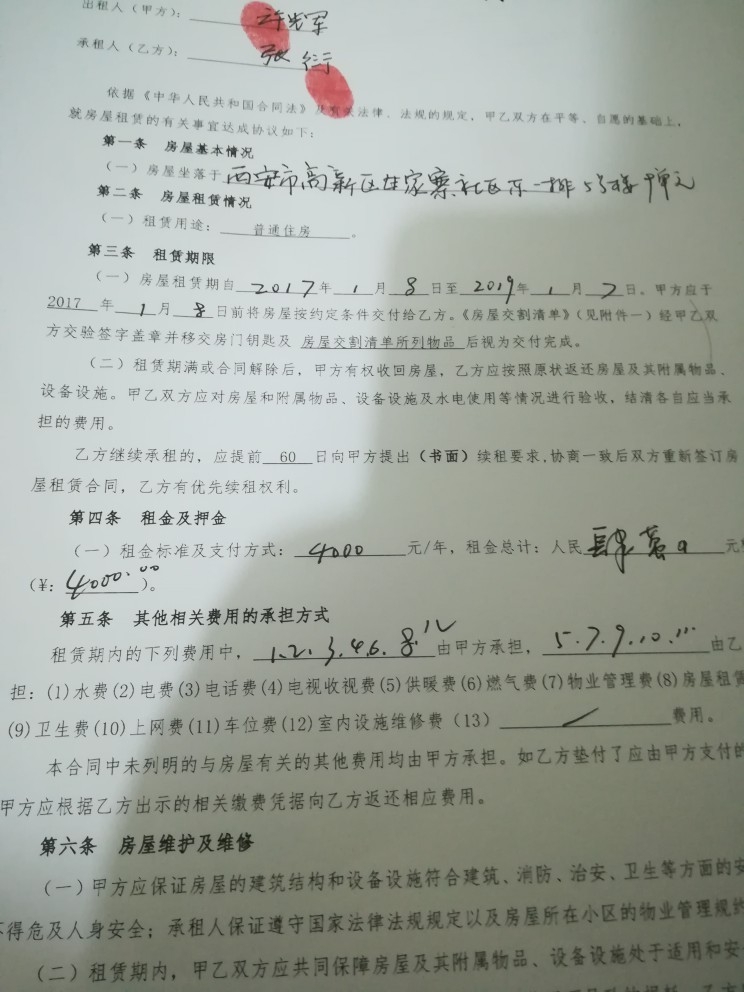 出租人(甲方):
承租人(乙方): 张衍
依据《中华人民共和国合同法》及有关法律、法规的规定,甲乙双方在平等、自愿的基础上,
就房屋租赁的有关事宜达成协议如下:
第一条 房屋基本情况
(一)房屋坐落于西安市高新区 家寨社区东一排5号楼 单元
第二条 房屋租赁情况
(一)租赁用途: 普通住房 。
第三条 租赁期限
(一)房屋租赁期自 2017 年 1 月 8 日至 2019 年 1 月 7 日。甲方应于
2017 年 1 月 8 日前将房屋按约定条件交付给乙方。《房屋交割清单》(见附件一)经甲乙双
方交验签字盖章并移交房门钥匙及 房屋交割清单所列物品 后视为交付完成。
(二)租赁期满或合同解除后,甲方有权收回房屋,乙方应按照原状返还房屋及其附属物品、
设备设施。甲乙双方应对房屋和附属物品、设备设施及水电使用等情况进行验收,结清各自应当承
担的费用。
乙方继续承租的,应提前 60 日向甲方提出(书面)续租要求,协商一致后双方重新签订房
屋租赁合同,乙方有优先续租权利。
第四条 租金及押金
(一)租金标准及支付方式: 4000 元/年,租金总计:人民 肆 元
(¥: 4000.00 )。
第五条 其他相关费用的承担方式
租赁期内的下列费用中, 1.2.3.4.6.8.12 由甲方承担, 5.7.9.10.11. 由乙
担:(1)水费(2)电费(3)电话费(4)电视收视费(5)供暖费(6)燃气费(7)物业管理费(8)房屋租赁
(9)卫生费(10)上网费(11)车位费(12)室内设施维修费(13) / 费用。
本合同中未列明的与房屋有关的其他费用均由甲方承担。如乙方垫付了应由甲方支付的
甲方应根据乙方出示的相关缴费凭据向乙方返还相应费用。
第六条 房屋维护及维修
(一)甲方应保证房屋的建筑结构和设备设施符合建筑、消防、治安、卫生等方面的安
不得危及人身安全;承租人保证遵守国家法律法规规定以及房屋所在小区的物业管理规约
(二)租赁期内,甲乙双方应共同保障房屋及其附属物品、设备设施处于适用和安